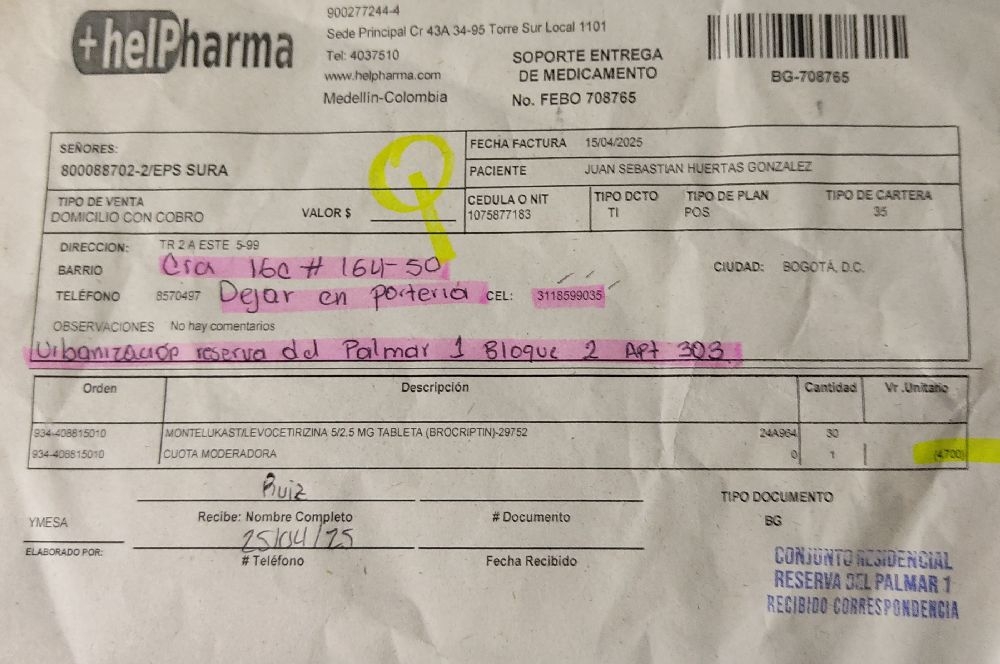 +helPharma
900277244-4
Sede Principal Cr 43A 34-95 Torre Sur Local 1101
Tel: 4037510
www.helpharma.com
Medellin-Colombia
SOPORTE ENTREGA
DE MEDICAMENTO
No. FEBO 708765
BG-708765
1
SEÑORES:
800088702-2/EPS SURA
FECHA FACTURA 15/04/2025
PACIENTE JUAN SEBASTIAN HUERTAS GONZALEZ
TIPO DE VENTA
DOMICILIO CON COBRO
VALOR $
CEDULA O NIT
1075877183
TIPO DCTO
TI
TIPO DE PLAN
POS
TIPO DE CARTERA
35
DIRECCION: TR 2 A ESTE 5-99
BARRIO Cra 16c # 164-50
CIUDAD: BOGOTÁ, D.C.
TELÉFONO 8570497 Dejar en portería CEL: 3118599035
OBSERVACIONES No hay comentarios
Urbanización reserva del Palmar 1 Bloque 2 Apt 303
Orden Descripción Cantidad Vr .Unitario
934-408815010 MONTELUKAST/LEVOCETIRIZINA 5/2.5 MG TABLETA (BROCRIPTIN)-29752 24A964 30
934-408815010 CUOTA MODERADORA 0 1 (4,700)
Ruiz
Recibe: Nombre Completo # Documento
25/04/25
# Teléfono Fecha Recibido
YMESA
ELABORADO POR:
TIPO DOCUMENTO
BG
CONJUNTO RESIDENCIAL
RESERVA DEL PALMAR 1
RECIBIDO CORRESPONDENCIA